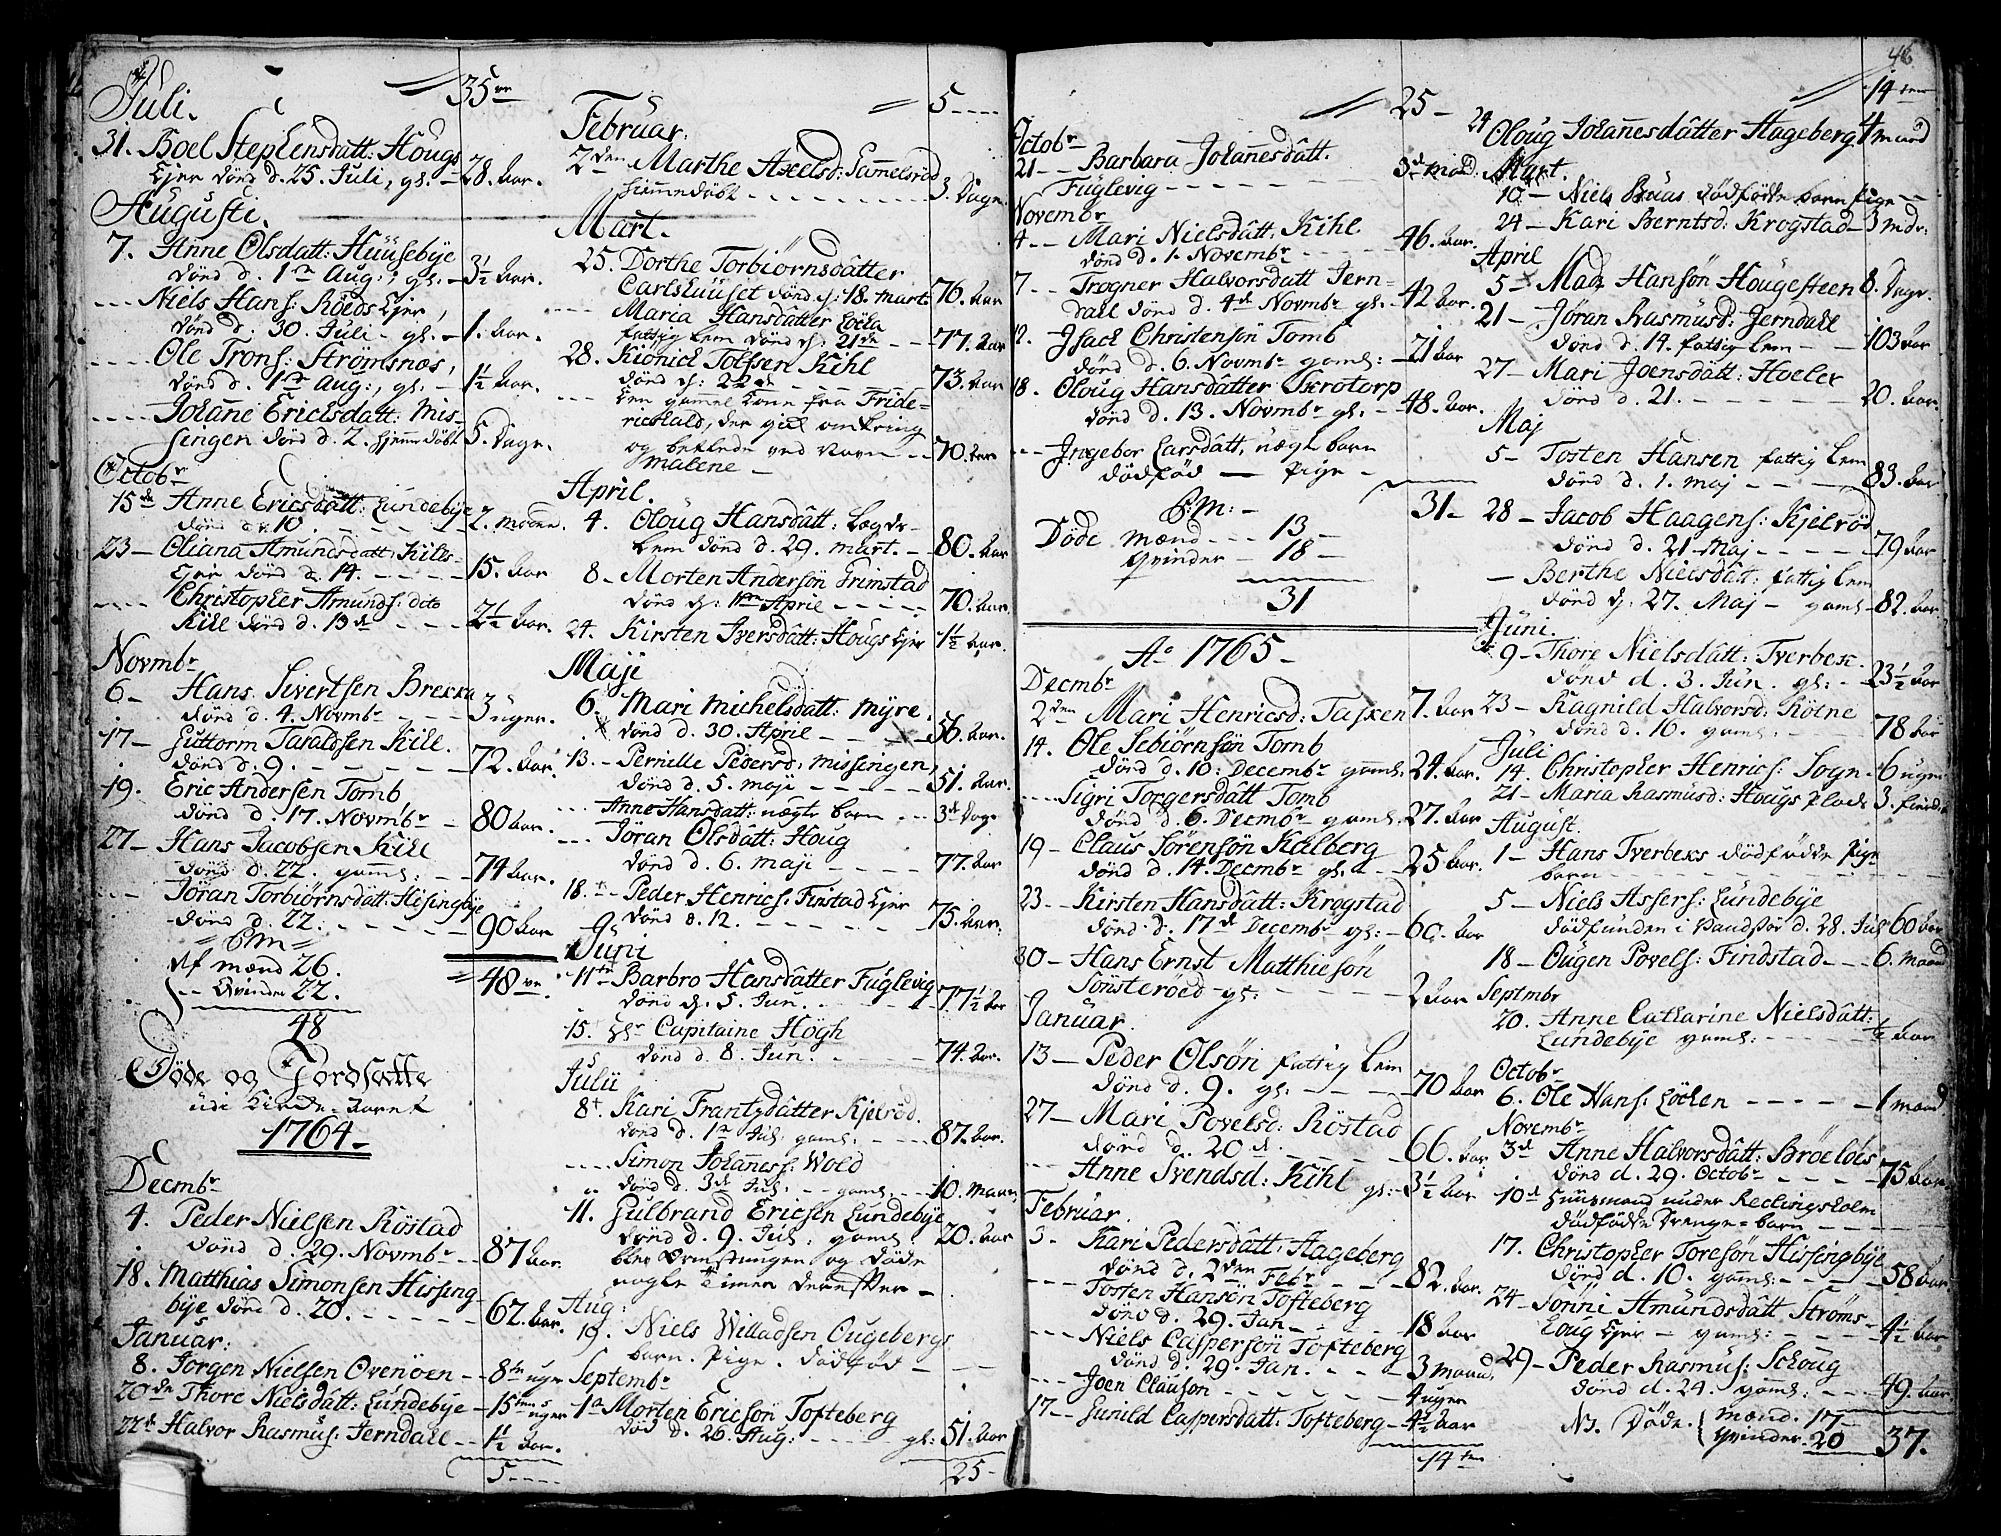 Juli. 35
31. Boel Stephensdatt: Hougs
Ejer død d. 25. Juli, gl: 28. Aar.
Augusti.
7. Anne Olsdatt: Huusebye
dønd d. 1 Aug: gl: 3½ Aar.
Niels Hans: Röeds Ejer,
dønd d. 30 Juli gl. 1. Aar.
Ole Trons: Strömsnæs,
dønd d. 1 Aug:, gl: 1½ Aar.
Johane Erichsdatt: Mis-
singen dønd d. 2. hjemmedöbt 5. Dage.
Octobr
15 Anne Ericsdatt: Lundebye
dønd d. 10. 2. Maaned.
23 Oliana Amundsdatt: Kihls
Ejer dønd d. 14. 15. Aar
Christopher Amunds: dito
Kihl dønd d. 13 2½ Aar.
Novmbr
6 Hans Sivertsen Brekka
dønd d. 4. Novmbr 3 uger.
17 Guttorm Taraldsen Kihl.
dønd d. 9. 72. Aar.
19. Eric Andersen Tomb
dønd d. 17. Novmbr 80 Aar.
27 Hans Jacobsen Kihl
dønd d. 22. gaml: 74 Aar.
Jöran Torbiörnsdatt: Hissingbye
dønd d. 22: 90 Aar
Af mænd 26. 48
Qvinder 22.
48
Döde og Jordsatte
udi Kirke-Aaret
1764
Decmbr
4. Peder Nielsen Röstad
dønd d. 29. Novmbr 87 Aar.
18. Matthias Simonsen Hissing-
bye dønd d. 20. 62. Aar.
Januar:
8. Jörgen Nielsen Ovenöen 8 uger
20 Thore Nielsdatt: Lundebye 15 uger
22 Halvor Rasmus: Jerndahl 1½ Aar.
5
Februar. 5
2den Marthe Axelsd: Sammelsröd
hiemmedöbt 3. Dage.
Mart.
25. Dorthe Torbiörnsdatter
Carlshuuset dønd d: 18. Mart: 76. Aar
Maria Hansdatter Löcka
fattig Lem dønd d: 21 77. Aar
28. Kiönick Tolfsen Kihl
dønd d: 22 73. Aar
En gammel Kone fra Fride-
richshald, der gik omkring
og betlede ved Navn 70. Aar
Malene
April.
4. Oloug Hansdatt: Lægds-
Lem dønd d. 29. Mart. 80. Aar
8 Morten Andersön Grimstad
dønd d: 1 April 70. Aar.
24. Kirsten Iversdatt: Hougs Ejer 1½ Aar.
Maji
6. Mari Michelsdatt: Myre.
dønd d. 30. April 56. Aar.
13. Pernille Pedersd: Missengen,
dønd d. 5. Maji 51. Aar.
Anne Hansdatt: uægte barn 3 Dage
Jöran Olsdatt: Houg
dønd d. 6. Maji 77. Aar
18. Peder Henrics: Finstad Ejer
dønd d. 12. 75. Aar.
Juni
11 Barbro Hansdatter Fuglevig
dønd d. 5. Jun. 77½ Aar
15. Hr Capitaine Högh
dønd d. 8. Jun. 74. Aar.
Julii
8. Kari Frantzdatter Kjelröd.
dønd d. 1 Jul: gaml: 87. Aar.
Simon Johannes: Wold
dønd d. 3 Jul: gaml. 10. Maan
11. Gulbrand Ericsen Lundebye
dønd d. 9. Jul: gaml. 20. Aar
blev Ormstungen og döde
nogle Timer derefter
Aug:
19. Niels Willadsen Ougebergs
barn. Pige. dödföd
Septembr
1 Morten Ericsön Tofteberg
död d. 26. Aug: gl: 51. Aar
25
46
Octobr 25
21 Barbara Johannesdatt.
Fuglevig 3 maaned.
Novembr
4 Mari Nielsdatt: Kihl
dønd d. 1. Novembr 46. Aar.
7 Trogner Halvorsdatt Jern-
dahl dønd d. 4 Novmbr gl: 42 Aar.
12. Isach Christensön Tomb
dønd d. 6. Novmbr gaml: 21 Aar
18. Oloug Hansdatter Ekrotorp
dønd d. 13. Novmbr gl: 48. Aar.
Ingebor Larsdatt, uægte barn
dödföd Pige
S:M: 31
Döde Mænd 13
Qvinder 18
31
Ao 1765
Decmbr
2den Mari Henricsd: Tasken 7. Aar
14. Ole Sebiörnsön Tomb
dønd d. 10. Decembr gaml: 24. Aar.
Sigri Torgersdatt Tomb
dønd d. 6. Decmbr gaml: 27. Aar
19 Claus Sörensön Kalberg
dønd d. 14. Decmbr gl. 25 Aar.
23. Kirsten Hansdatt: Krogstad
dønd d. 17 Decembr gl: 60. Aar
30 Hans Ernst Matthiesön
Sönsteröed gl: 2 Aar
Januar.
13 Peder Olsön fattig Lem
dønd d. 9. gl: 70 Aar
27 Mari Povelsd: Röstad
dønd d. 20 66. Aar
Anne Svendsd: Kihl gl: 3½ Aar
Februar.
3. Kari Pedersdatt: Hageberg
dønd d. 2den Febr 82. Aar.
Tosten Hansön Tofteberg
dønd d. 29. Jan 18 Aar
Niels Caspersön Tofteberg
dønd d. 29. Jan. 3 maaned
Joen Clausön 4 uger
17 Gunild Caspersdatt: Tofteberg 4½ Aar
14
14
24 Oloug Johannesdatter Hageberg 4 maaned
Mart.
10 Niels Buaas dödfödde barn pige
24 Kari Berntsd: Krogstad 3 mdr.
April
5 Mads Hansön Hougesteen 8. Dage.
21 Jöran Rasmusd: Jerndahl
dønd d. 14. fattig Lem 103 Aar
27 Mari Joensdatt: Hveler
dønd d. 21. 20. Aar.
Maj
5 Tosten Hansen fattig Lem
dønd d. 1. Maj 83. Aar
28 Jacob Haagens: Kjelröd
dønd d. 21 Maj 79 Aar
Berthe Nielsdatt: fattig Lem
dønd d: 27. Maj gaml: 82. Aar
Juni.
9 Thore Nielsdatt: Tverbek
dønd d. 3. Jun. gl: 23½ Aar
23 Ragnild Halvorsd: Kölne
dønd d. 16. gaml: 78 Aar
Juli
14. Christopher Henrics: Sogn 6 uger
21 Maria Rasmusd: Hougs Plads 3.
August.
1 Hans Tverbeks dödfödde Pige
barn
5 Niels Assers: Lundebye
dödfunden i Vandstör d. 28. Jul 60 Aar
18 Ougen Povels: Findstad 6. maaned
Septmbr
20. Anne Catharine Nielsdatt:
Lundebye gaml: ½ Aar
Octobr
6. Ole Hans: Löcken 1 maaned
Novembr
3 Anne Halvorsdatt: Bröelös
dønd d. 29. Octobr 75 Aar.
10 Huusmand under Reclingsholm
dödfödde Drenge-barn
17. Christopher Toresön Hissingbye
dønd d. 10. gaml: 58 Aar
24 Jönni Amundsdatt Ströms-
Houg Ejer gaml: 4½ Aar
29 Peder Rasmus: Schoug
dønd d. 24. gaml: 49. Aar
N3. Döde. Mænd. 17
Qvinder. 20 37.